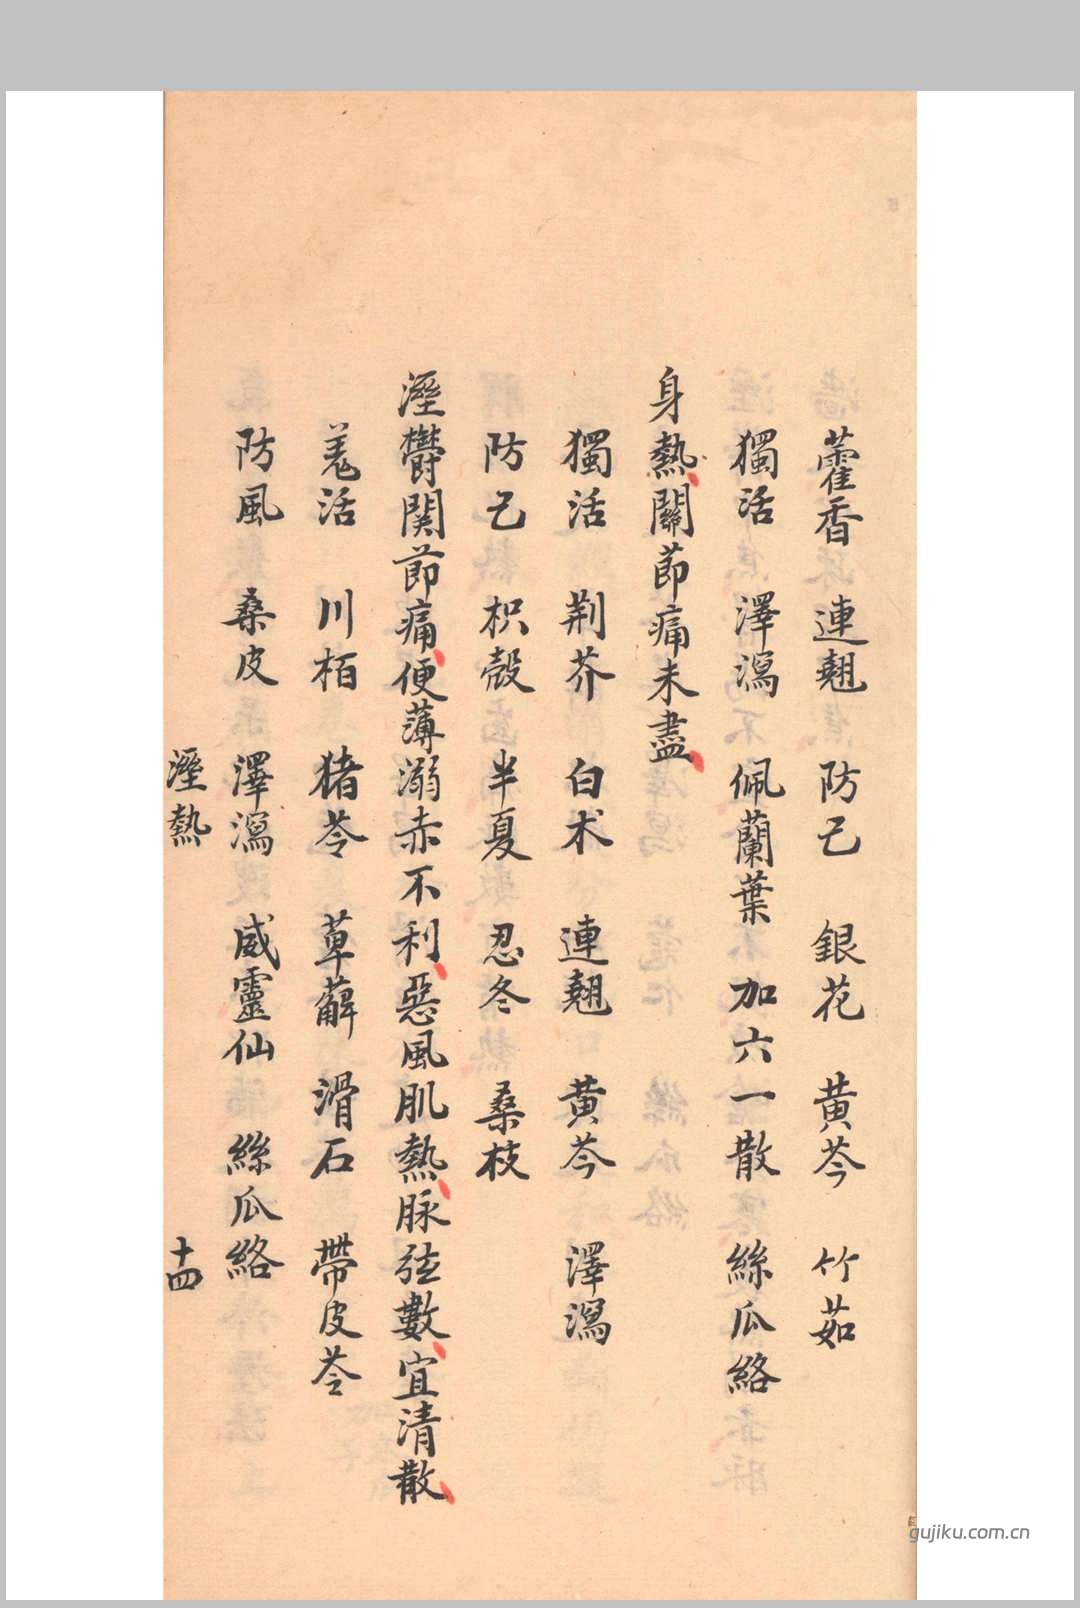 藿香　連翹　防己　銀花　黄芩　竹茹
獨活　澤瀉　佩蘭葉　加六一散　絲瓜絡
身熱、關節痛未盡、
獨活　荆芥　白术　連翹　黄芩　澤瀉
防己　枳殼　半夏　忍冬　桑枝
溼欝関節痛、便薄溺赤不利、惡風肌熱、脉弦數、宜清散、
羌活　川栢　猪苓　草薢　滑石　帶皮苓
防風　桑皮　澤瀉　威靈仙　絲瓜絡
溼熱　十四
gujiku.com.cn